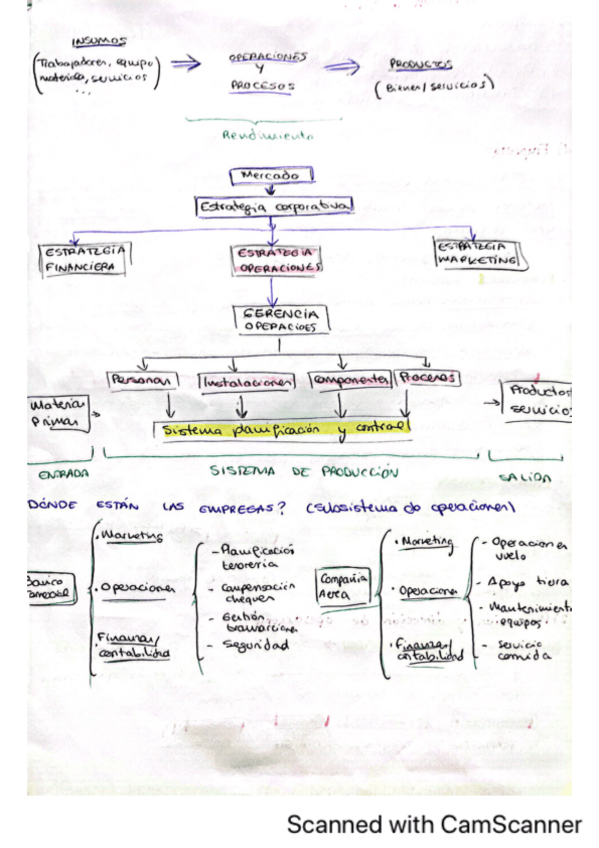 INSUMOS
(Trabajadores, equipo
materiales, servicios)
...
OPERACIONES
Y
PROCESOS
PRODUCTOS
(Bienes/servicios)
Rendimiento
Mercado
Estrategia corporativa
ESTRATEGIA
FINANCIERA
ESTRATEGIA
OPERACIONES
ESTRATEGIA
MARKETING
GERENCIA
OPERACIOES
Personas
Instalaciones
Componentes
Procesos
Materia
Primas
Sistema planificación y control
Productos
Servicios
ENTRADA
SISTEMA DE PRODUCCIÓN
SALIDA
DÓNDE ESTÁN LAS EMPRESAS? (Subsistema de operaciones)
Banco
comercial
. Marketing
. Operaciones
. Finanzas/
contabilidad
- Planificación
tesorería
- Compensación
cheques
- Gestión
transacciones
- Seguridad
Compañia
Aerea
. Marketing
. Operaciones
. Finanzas/
contabilidad
- Operaciones
vuelo
- Apoyo tierra
- Mantenimiento
equipos
- servicio
comida
Scanned with CamScanner